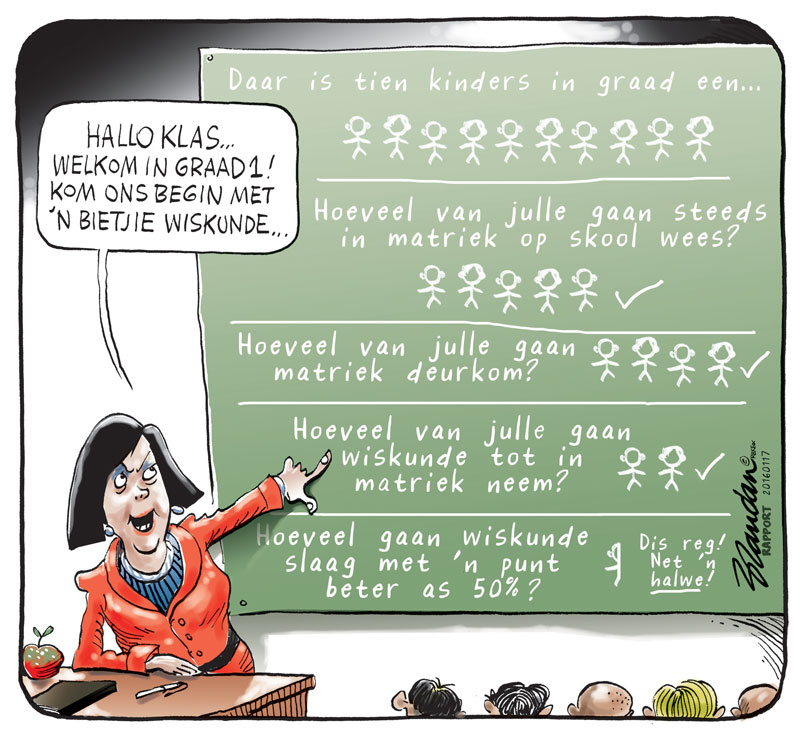 HALLO KLAS...
WELKOM IN GRAAD 1!
KOM ONS BEGIN MET
'N BIETJIE WISKUNDE...
Daar is tien kinders in graad een...
Hoeveel van julle gaan steeds
in matriek op skool wees?
Hoeveel van julle gaan
matriek deurkom?
Hoeveel van julle gaan
wiskunde tot in
matriek neem?
Hoeveel gaan wiskunde
slaag met 'n punt
beter as 50%?
Dis reg!
Net 'n
halwe!
Brandan
©
RAPPORT 20160117